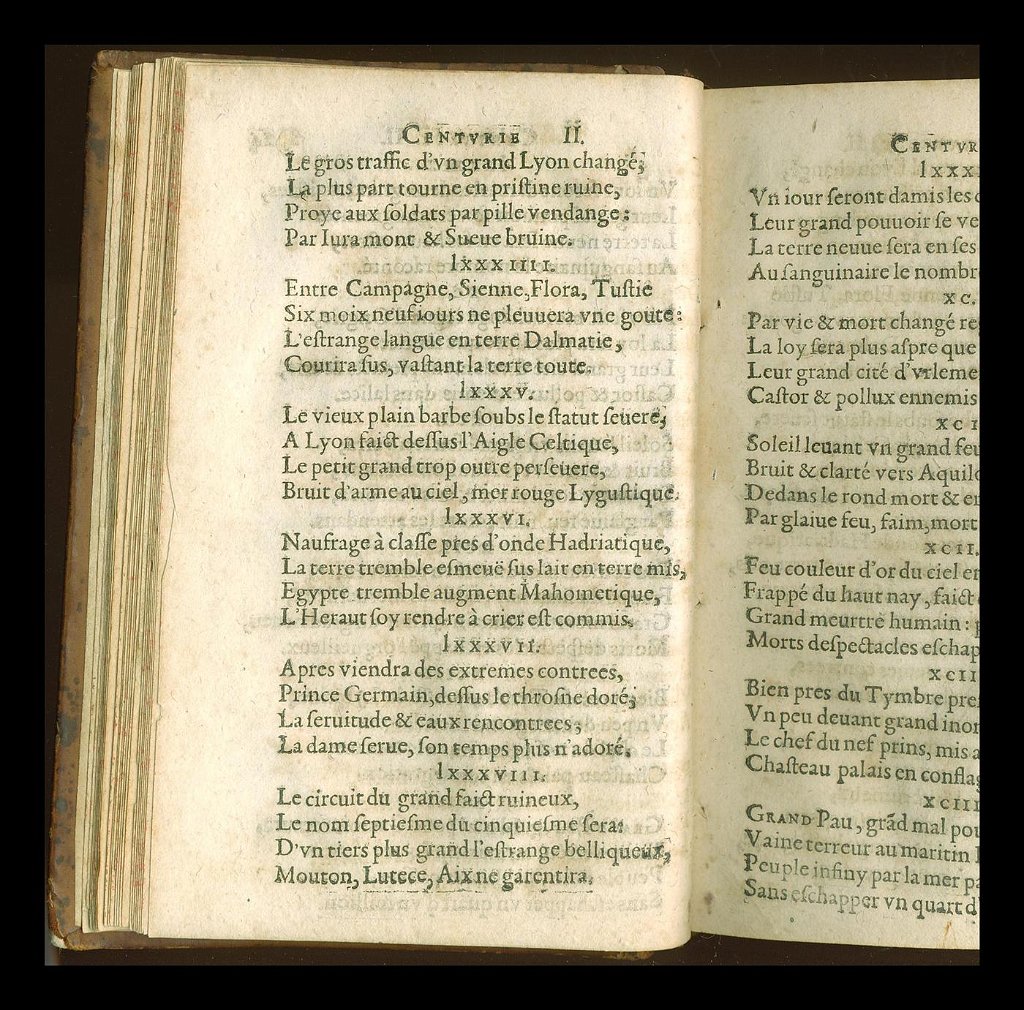 CENTVRIE II.
Le gros traffic d'vn grand Lyon changé;
La plus part tourne en pristine ruine,
Proye aux soldats par pille vendange:
Par Iura mont & Sueue bruine.
lxxxiiii.
Entre Campagne, Sienne, Flora, Tustie
Six moix neuf iours ne pleuuera vne goute:
L'estrange langue en terre Dalmatie,
Courira sus, vastant la terre toute.
lxxxv.
Le vieux plain barbe soubs le statut seuere;
A Lyon faict dessus l'Aigle Celtique,
Le petit grand trop outre perseuere,
Bruit d'arme au ciel, mer rouge Lygustique.
lxxxvi.
Naufrage à classe pres d'onde Hadriatique,
La terre tremble esmeuë sus lair en terre mis,
Egypte tremble augment Mahometique,
L'Heraut soy rendre à crier est commis.
lxxxvii.
Apres viendra des extremes contrees,
Prince Germain, dessus le throsne doré;
La seruitude & eaux rencontrees;
La dame serue, son temps plus n'adoré.
lxxxviii.
Le circuit du grand faict ruineux,
Le nom septiesme du cinquiesme sera:
D'vn tiers plus grand l'estrange belliqueux,
Mouton, Lutece, Aix ne garentira.
CENTVR
lxxx
Vn iour seront damis les
Leur grand pouuoir se ve
La terre neuue sera en ses
Au sanguinaire le nombr
xc.
Par vie & mort changé re
La loy sera plus aspre que
Leur grand cité d'vrleme
Castor & pollux ennemis
xci
Soleil leuant vn grand feu
Bruit & clarté vers Aquilo
Dedans le rond mort &
Par glaiue feu, faim, mort
xcii.
Feu couleur d'or du ciel en
Frappé du haut nay, faict
Grand meurtre humain:
Morts despectacles eschap
xcii
Bien pres du Tymbre pre
Vn peu deuant grand inon
Le chef du nef prins, mis a
Chasteau palais en conflag
xciii
GRAND Pau, grãd mal pou
Vaine terreur au maritin
Peuple infiny par la mer pa
Sans eschapper vn quart d'